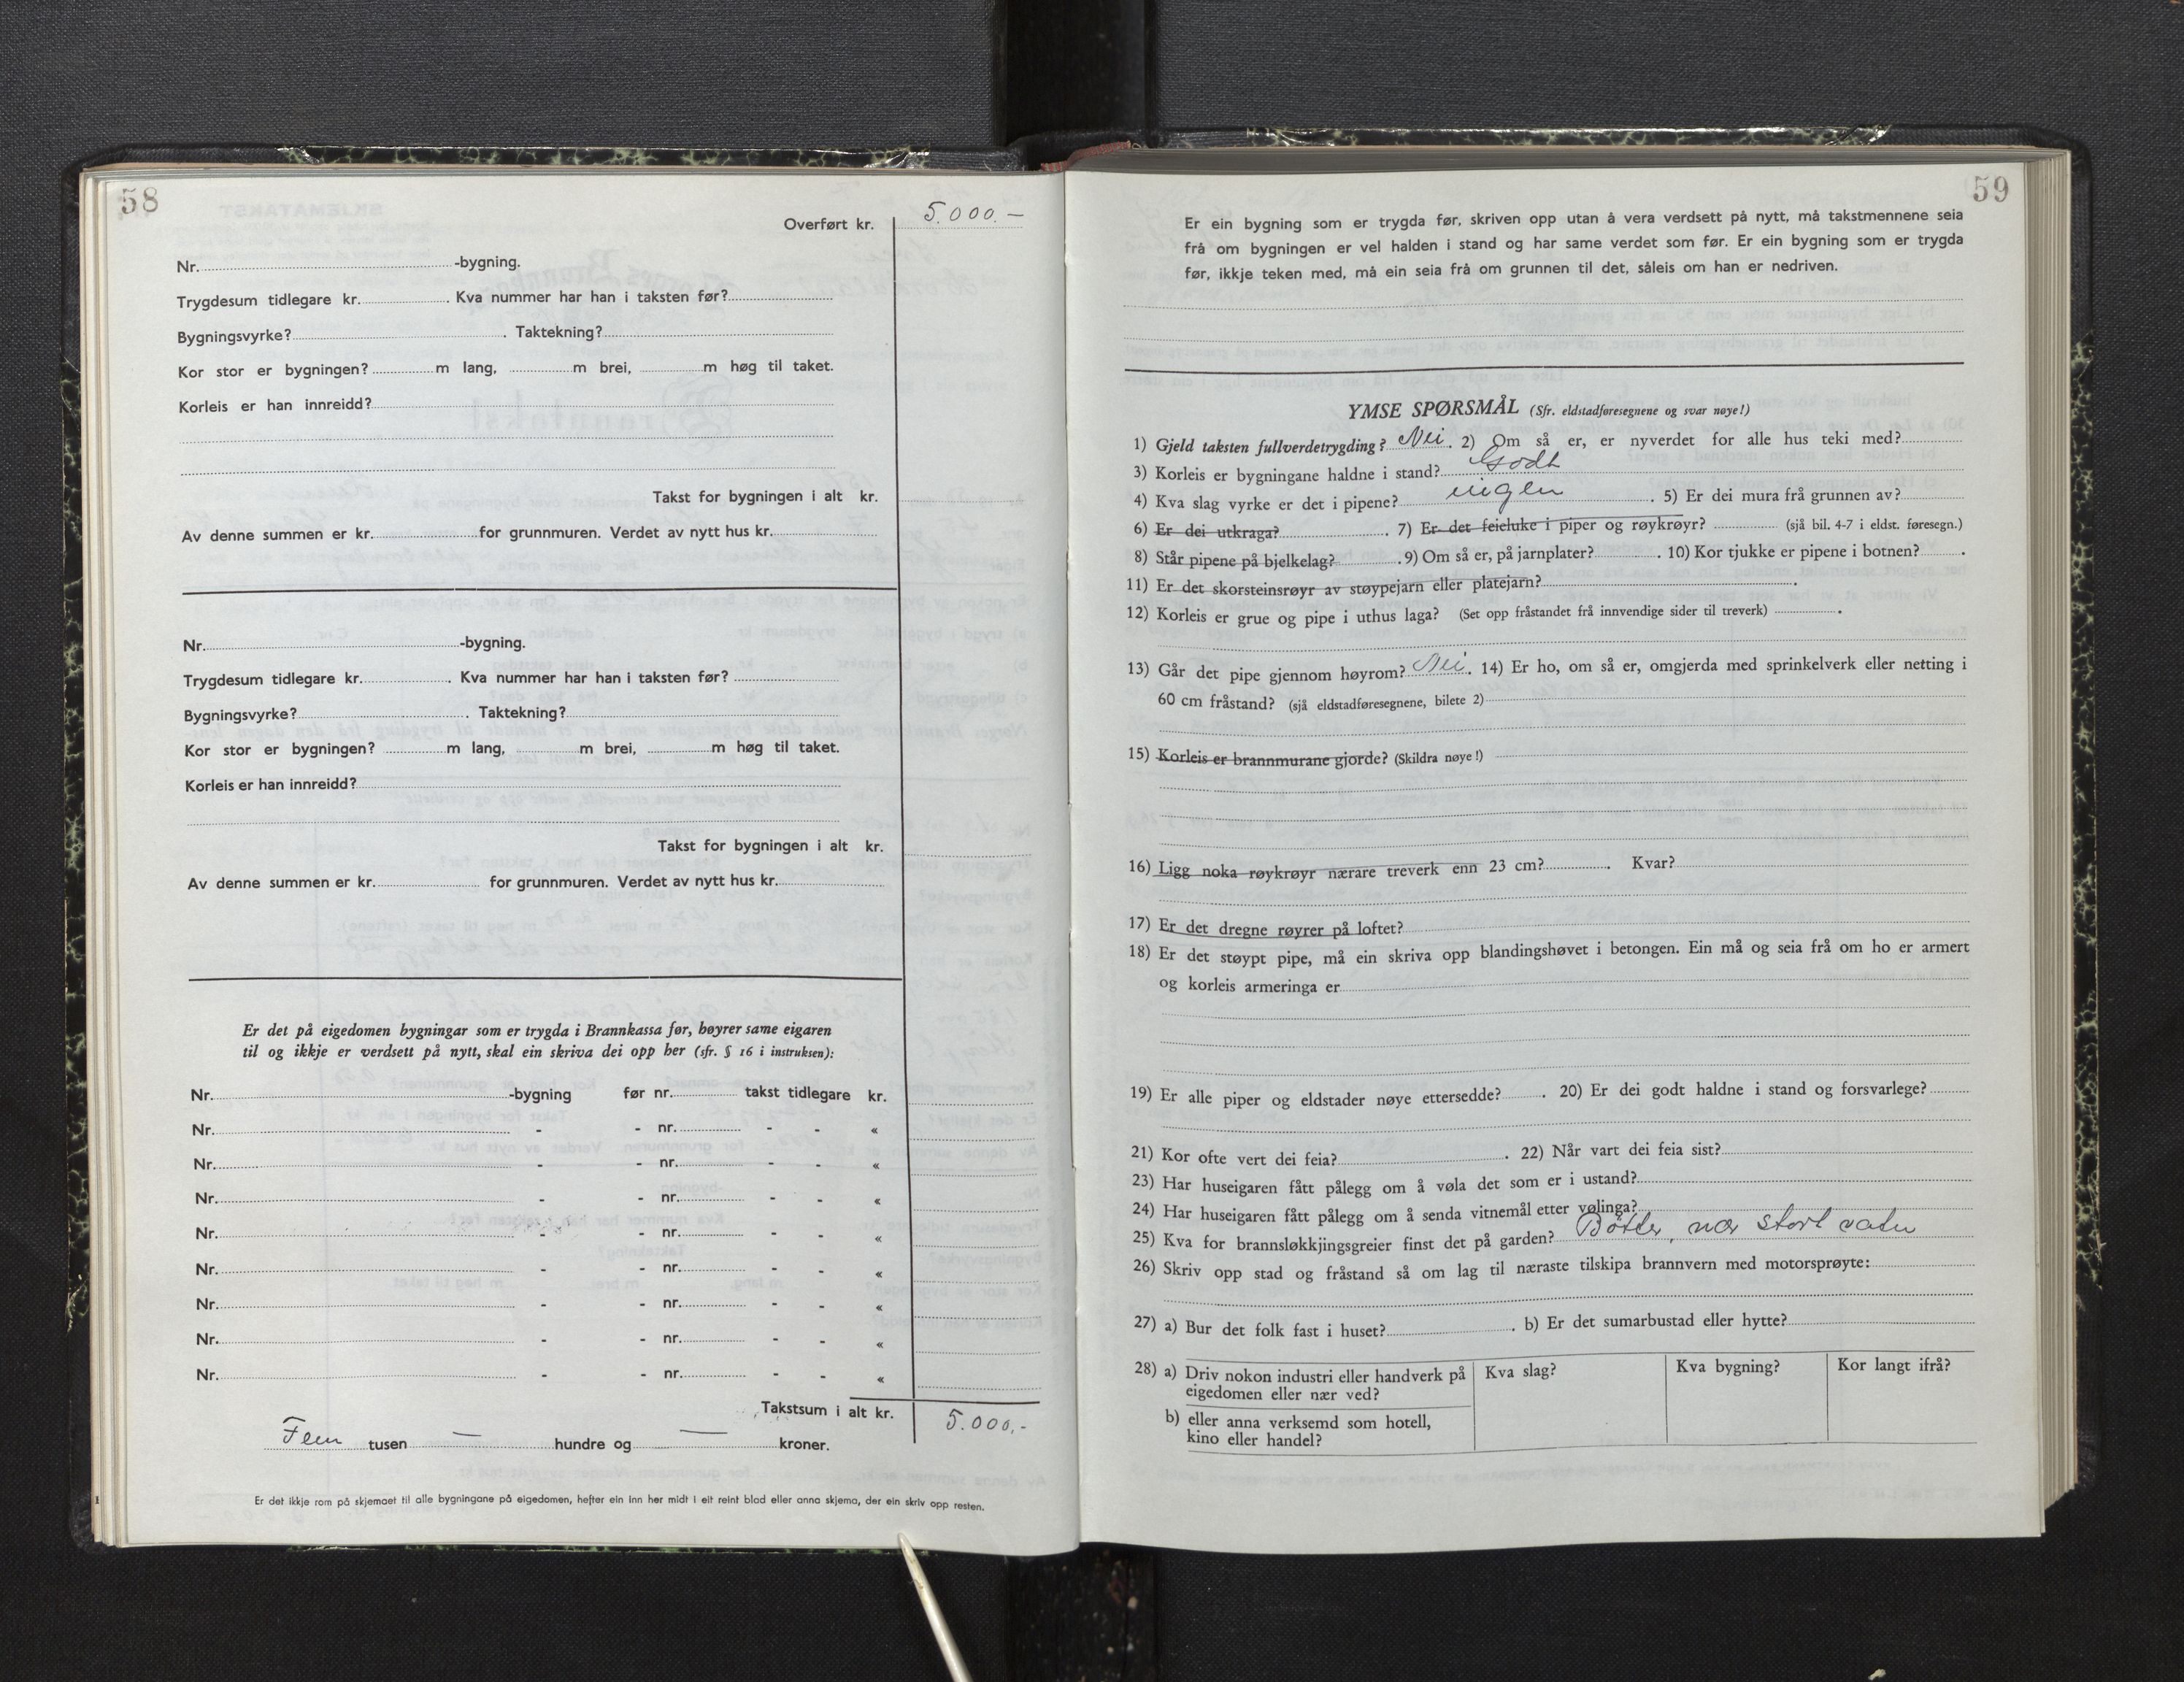 58
Overført kr. 5.000.-
Nr. -bygning.
Trygdesum tidlegare kr. . Kva nummer har han i taksten før?
Bygningsvyrke? . Taktekning?
Kor stor er bygningen? m lang, m brei, m høg til taket.
Korleis er han innreidd?
Takst for bygningen i alt kr.
Av denne summen er kr. for grunnmuren. Verdet av nytt hus kr.
Nr. -bygning.
Trygdesum tidlegare kr. . Kva nummer har han i taksten før?
Bygningsvyrke? . Taktekning?
Kor stor er bygningen? m lang, m brei, m høg til taket.
Korleis er han innreidd?
Takst for bygningen i alt kr.
Av denne summen er kr. for grunnmuren. Verdet av nytt hus kr.
Er det på eigedomen bygningar som er trygda i Brannkassa før, høyrer same eigaren
til og ikkje er verdsett på nytt, skal ein skriva dei opp her (sfr. § 16 i instruksen):
Nr. -bygning før nr. takst tidlegare kr.
Nr. - - nr. - - «
Nr. - - nr. - - «
Nr. - - nr. - - «
Nr. - - nr. - - «
Nr. - - nr. - - «
Nr. - - nr. - - «
Nr. - - nr. - - «
Nr. - - nr. - - «
Takstsum i alt kr. 5.000,-
Fem tusen — hundre og — kroner.
Er det ikkje rom på skjemaet til alle bygningane på eigedomen, hefter ein inn her midt i eit reint blad eller anna skjema, der ein skriv opp resten.
59
Er ein bygning som er trygda før, skriven opp utan å vera verdsett på nytt, må takstmennene seia
frå om bygningen er vel halden i stand og har same verdet som før. Er ein bygning som er trygda
før, ikkje teken med, må ein seia frå om grunnen til det, såleis om han er nedriven.
YMSE SPØRSMÅL (Sfr. eldstadføresegnene og svar nøye!)
1) Gjeld taksten fullverdetrygding? Nei. 2) Om så er, er nyverdet for alle hus teki med?
3) Korleis er bygningane haldne i stand? Godt
4) Kva slag vyrke er det i pipene? ingen . 5) Er dei mura frå grunnen av?
6) Er dei utkraga? . 7) Er det feieluke i piper og røykrøyr? (sjå bil. 4-7 i eldst. føresegn.)
8) Står pipene på bjelkelag? . 9) Om så er, på jarnplater? . 10) Kor tjukke er pipene i botnen? .
11) Er det skorsteinsrøyr av støypejarn eller platejarn? .
12) Korleis er grue og pipe i uthus laga? (Set opp fråstandet frå innvendige sider til treverk) .
13) Går det pipe gjennom høyrom? Nei. 14) Er ho, om så er, omgjerda med sprinkelverk eller netting i
60 cm fråstand? (sjå eldstadføresegnene, bilete 2)
15) Korleis er brannmurane gjorde? (Skildra nøye!)
16) Ligg noka røykrøyr nærare treverk enn 23 cm? . Kvar?
17) Er det dregne røyrer på loftet?
18) Er det støypt pipe, må ein skriva opp blandingshøvet i betongen. Ein må og seia frå om ho er armert
og korleis armeringa er
19) Er alle piper og eldstader nøye ettersedde? . 20) Er dei godt haldne i stand og forsvarlege?
21) Kor ofte vert dei feia? . 22) Når vart dei feia sist?
23) Har huseigaren fått pålegg om å vøla det som er i ustand?
24) Har huseigaren fått pålegg om å senda vitnemål etter vølinga?
25) Kva for brannsløkkjingsgreier finst det på garden? Bötter, nær stort vatn
26) Skriv opp stad og fråstand så om lag til næraste tilskipa brannvern med motorsprøyte:
27) a) Bur det folk fast i huset? . b) Er det sumarbustad eller hytte?
28) a) Driv nokon industri eller handverk på Kva slag? Kva bygning? Kor langt ifrå?
eigedomen eller nær ved?
b) eller anna verksemd som hotell,
kino eller handel?